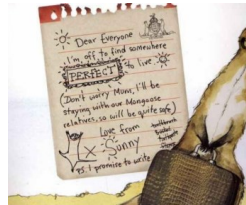 Dear Everyone
I'm off to find somewhere
PERFECT to live
(Don't worry Mum, I'll be
staying with our Mongoose
relatives, so will be quite safe)
Love from
Sonny
x
toothbrush
P.S. I promise to write